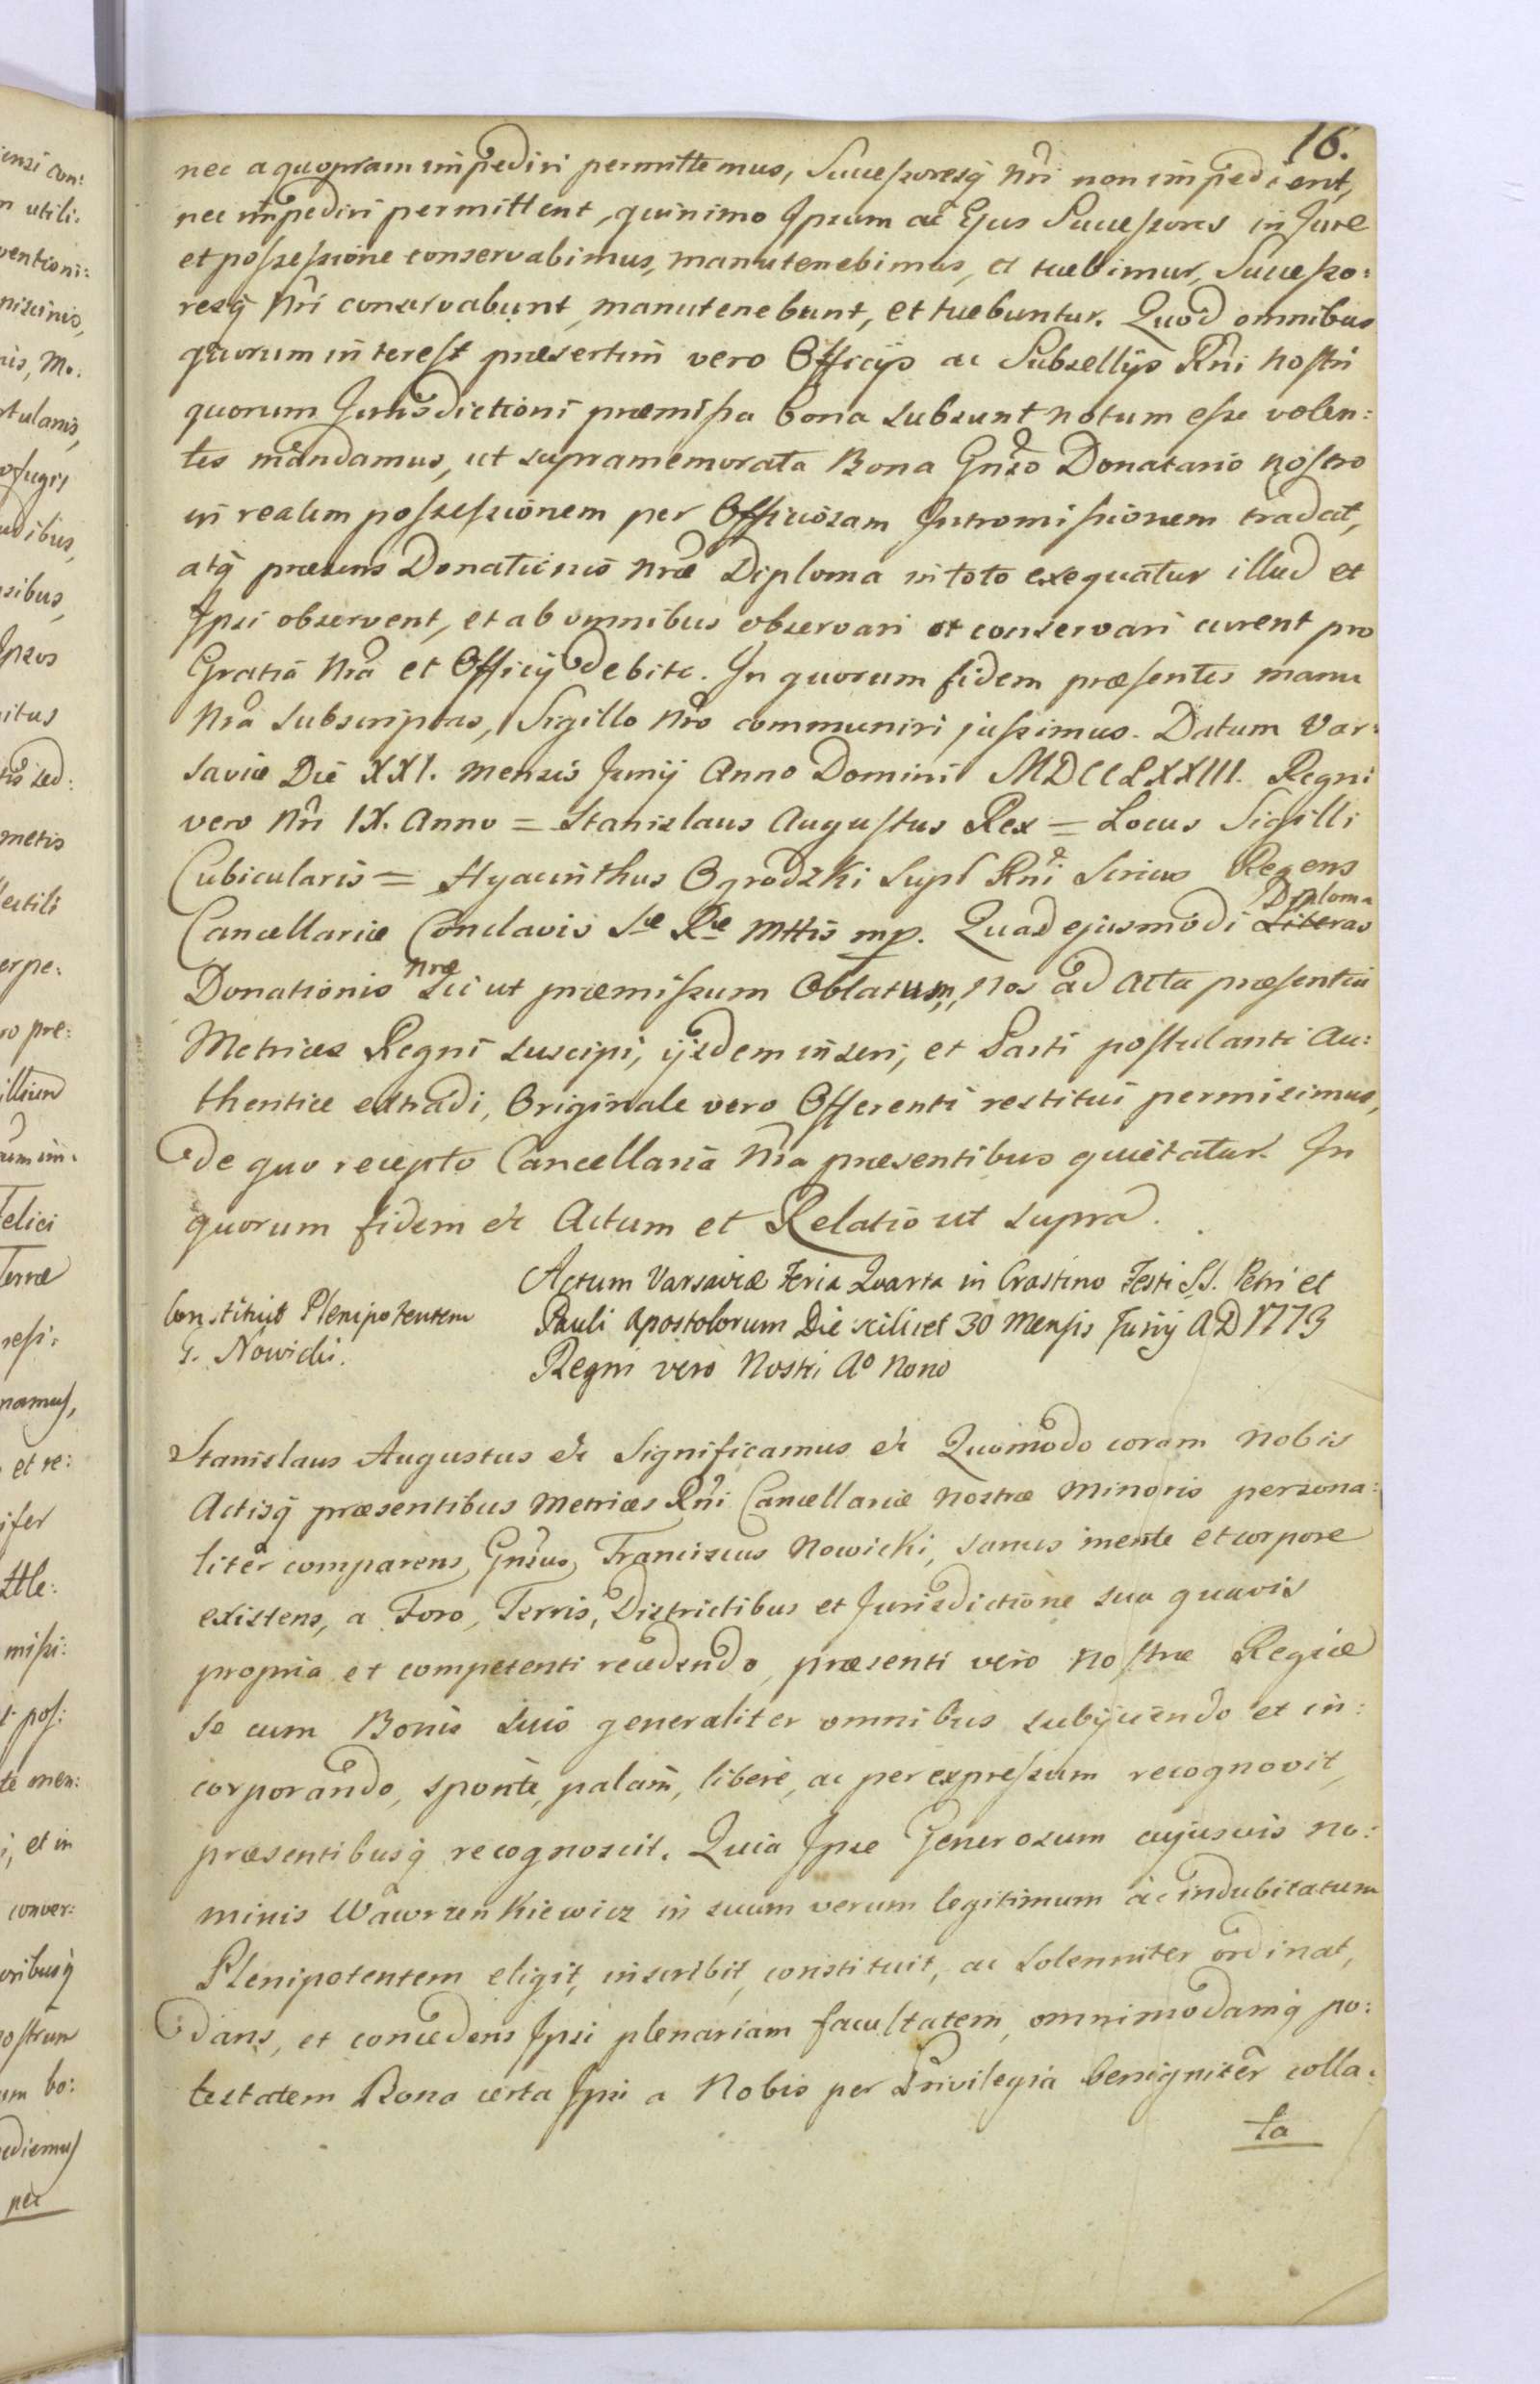 16.
nec a quopiam impediri permittemus, Successoresq̃ Nr̃i non impedient,
nec impediri permittent, quinimo Ipsum ac Ejus Successores in Jure
et possessione conservabimus, manutenebimus, et tuebimur, Successo:
resq̃ Nr̃i conservabunt, manutenebunt, et tuebuntur. Quod omnibus
quorum interest præsertim vero Officijs ac Subsellijs Rñi Nostri
quorum Jurisdictioni præmissa bona subsunt notum esse volen:
tes mandamus, ut supramemorata Bona Gñso Donatario nostro
in realem possessionem per Officiosam Intromissionem tradat,
atq̃ præsens Donationis Nræ Diploma in toto exequatur illud et
Ipsi observent, et ab omnibus observari et conservari curent pro
Gratiâ Nrâ et Officij debito. In quorum fidem præsentes manu
Nrâ subscriptas, Sigillo Nro communiri jussimus. Datum Var:
saviæ Die XXI. Mensis Junij Anno Domini MDCCLXXIII. Regni
vero Nri IX. Anno = Stanislaus Augustus Rex = Locus Sigilli
Cubicularis = Hyacinthus Ogrodzki Supl Rñi Scrius Regens
Diploma
Cancellariæ Conclavis Sæ Ræ Mttis mp. Quod ejusmodi Literas
Nræ
Donationis Sic ut præmissum Oblatum, Nos ad Acta præsentia
Metrices Regni suscipi, ijsdem inseri, et Parti postulanti Au:
thentice extradi, Originale vero Offerenti restitui permisimus,
de quo recepto Cancellaria Nra præsentibus quietatur. In
quorum fidem &c Actum et Relatio ut supra.
Actum Varsaviæ Feria Quarta in Crastino Festi S.S. Petri et
Pauli Apostolorum Die scilicet 30 Mensis Junij A D 1773
Regni vero Nostri Aº Nono
Constituit Plenipotentem
G. Nowicki.
Stanislaus Augustus &c Significamus &c Quomodo coram Nobis
Actisq̃ præsentibus Metrices Rñi Cancellariæ Nostræ Minoris persona:
liter comparens Gñsus Franciscus Nowicki, sanus mente et corpore
existens, a Foro, Terris, Districtibus et Jurisdictione sua quavis
propria et competenti recedendo, præsenti vero Nostræ Regiæ
se cum Bonis suis generaliter omnibus subijciendo et in:
corporando, sponte, palam, libere, ac per expressum recognovit,
præsentibusq̃ recognoscit. Quia Ipse Generosum cujusvis no:
minis Wawrzenkiewicz in suum verum legitimum ac indubitatum
Plenipotentem eligit, inscribit, constituit, ac solenniter ordinat,
dans, et concedens Ipsi plenariam facultatem, omnimodamq̃ po:
testatem Bona certa Ipsi a Nobis per Privilegia benigniter colla:
ta